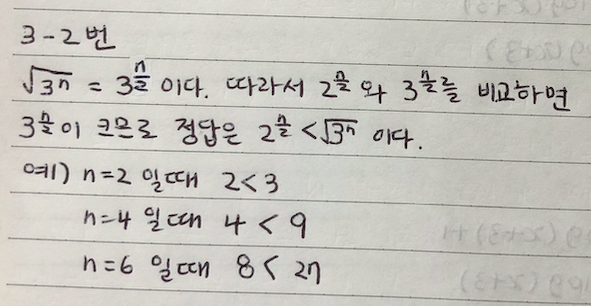 3-2번
√3ⁿ = 3^(n/2) 이다. 따라서 2^(n/2) 와 3^(n/2)를 비교하면
3^(n/2)이 크므로 정답은 2^(n/2) < √3ⁿ 이다.
예) n=2 일때 2<3
n=4 일때 4 < 9
n=6 일때 8 < 27